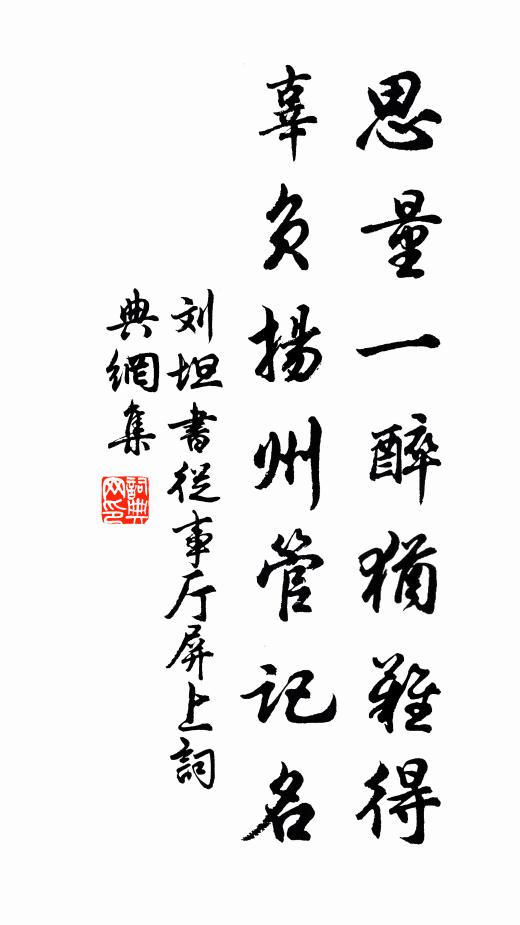 思量一醉猶難得
辜負揚州管記名
刘坦書從事厅屏上詞
典網集
詞典網印